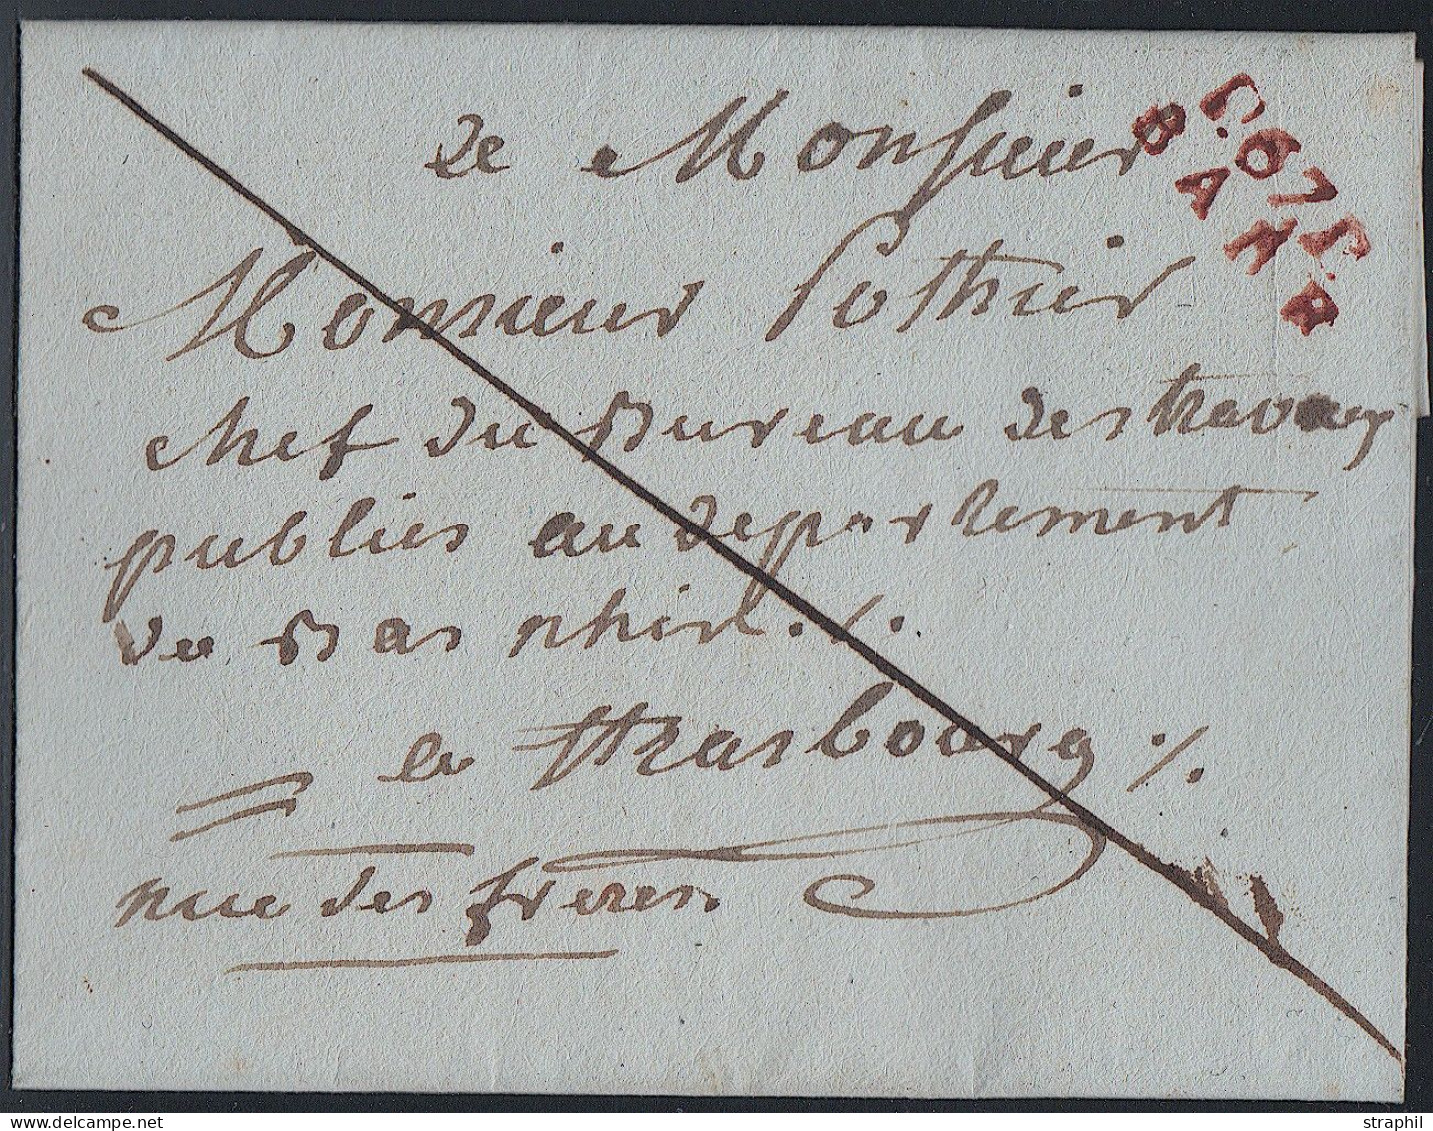 de Monsieur
Monsieur Pothier
chef du Bureau des travaux
publics au departement
du Bas rhin ./.
a Strasbourg ./.
rue des freres
straphil